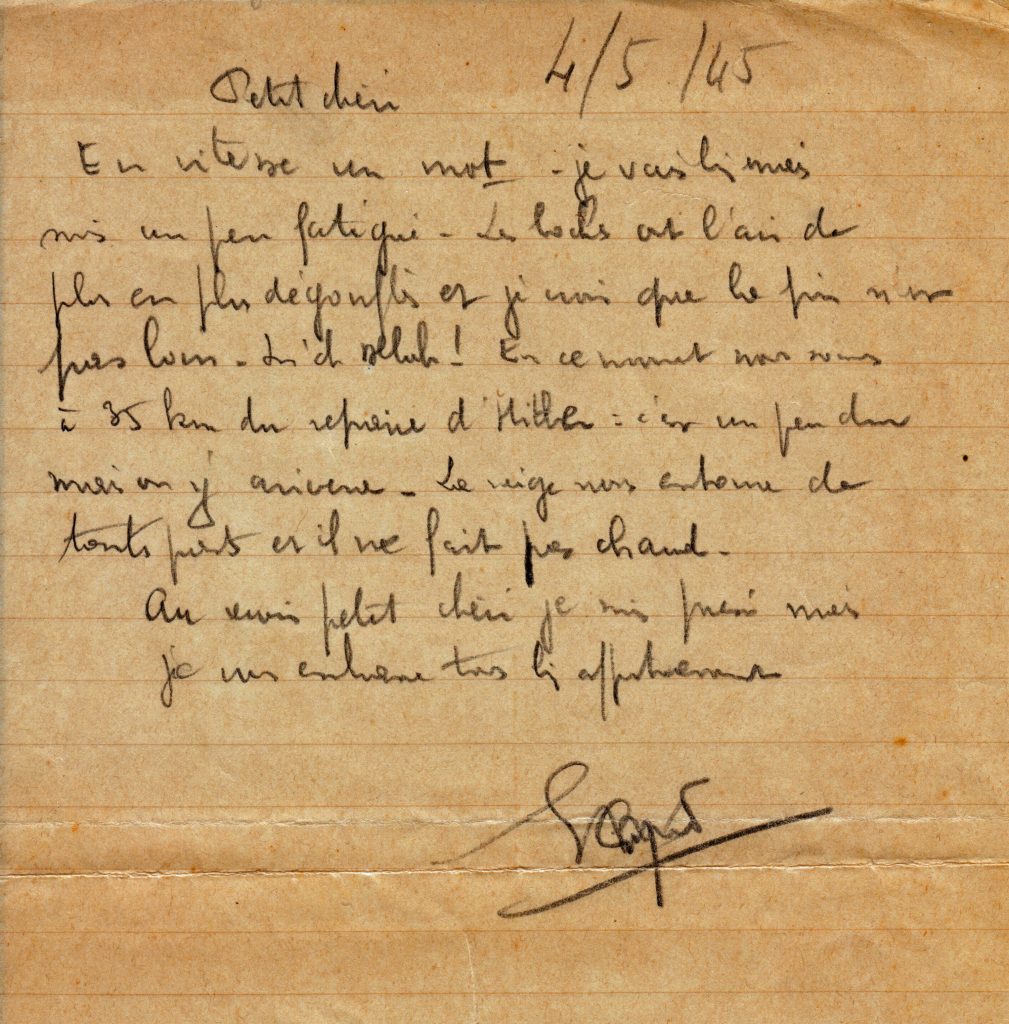 4/5/45
Petit chéri
En vitesse un mot - je vais bien mais
suis un peu fatigué - Les bochs ont l'air de
plus en plus dégonflés et je crois que la fin n'est
pas loin - En ce moment nous sommes
à 35 km du repaire d'Hitler : c'est un peu dur
mais on y arrivera - La neige nous entoure de
touts parts et il ne fait pas chaud -
Au revoir petit chéri je suis pressé mais
je vous embrasse tous bien affectueusement